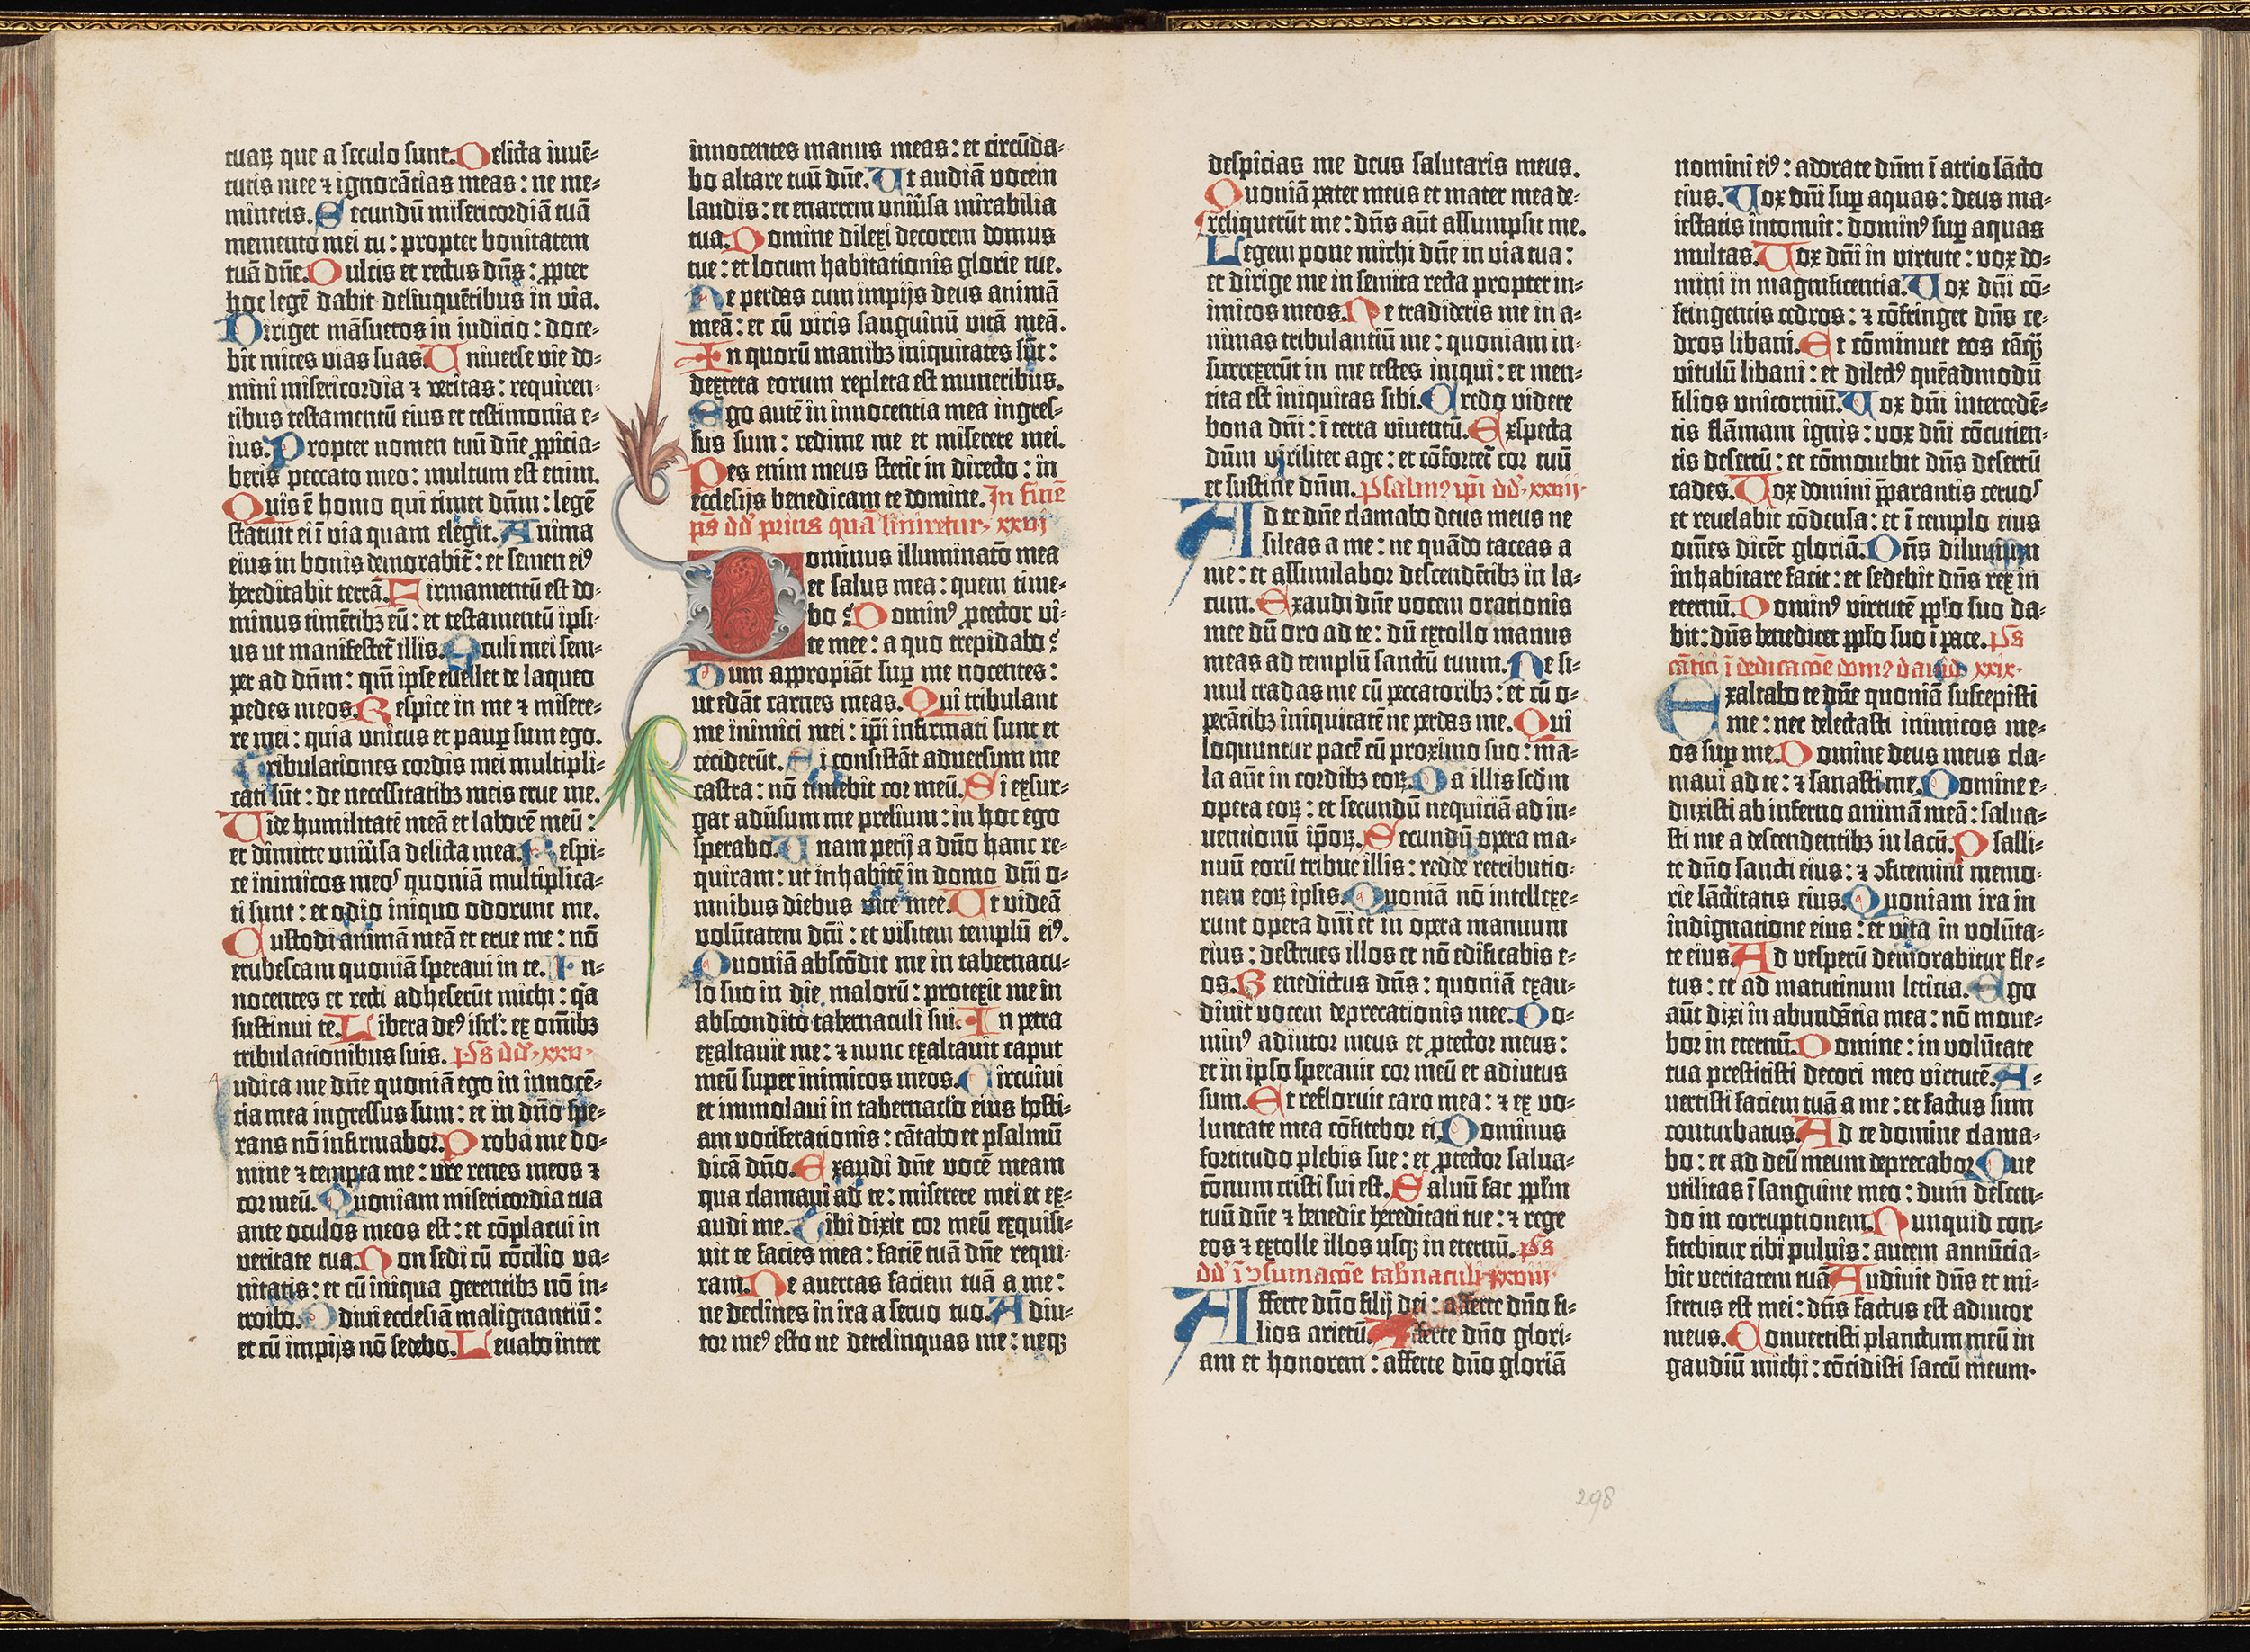 tuaꝝ que a seculo sunt. Delicta iuuē-
tutis mee ⁊ ignorātias meas : ne me-
mineris. Secundū misericordiā tuā
memento mei tu : propter bonitatem
tuā dn̄e. Dulcis et rectus dn̄s : ꝓpter
hoc legē dabit delinquētibus in via.
Diriget māsuetos in iudicio : doce-
bit mites vias suas. Uniuerse vie do-
mini misericordia ⁊ veritas : requiren-
tibus testamentū eius et testimonia e-
ius. Propter nomen tuū dn̄e ꝓpicia-
beris peccato meo : multum est enim.
Quis ē homo qui timet dn̄m : legē
statuit ei ī via quam elegit. Anima
eius in bonis demorabit᷑ : et semen eiꝰ
hereditabit terrā. Firmamentū est do-
minus timētibꝫ eū : et testamentū ipsi-
us ut manifestet᷑ illis. Oculi mei sem-
per ad dn̄m : qm̄ ipse euellet de laqueo
pedes meos. Respice in me ⁊ misere-
re mei : quia vnicus et paup̄ sum ego.
Tribulationes cordis mei multipli-
cati sūt : de necessitatibꝫ meis erue me.
Uide humilitatē meā et laborē meū :
et dimitte vniu̅sa delicta mea. Respi-
ce inimicos meos quoniā multiplica-
ti sunt : et odio iniquo oderunt me.
Custodi animā meā et erue me : nō
erubescam quoniā speraui in te. In-
nocentes et recti adheserūt michi : qͣa
sustinui te. Libera deꝰ isrl᷑ : ex om̄ibꝫ
tribulationibus suis. p̄s dd̄. xxv.
udica me dn̄e quoniā ego in innocē-
tia mea ingressus sum : et in dn̄o spe-
rans nō infirmabor. Proba me do-
mine ⁊ tempta me : vre renes meos ⁊
cor meū. Quoniam misericordia tua
ante oculos meos est : et cōplacui in
veritate tua. Non sedi cū cōcilio va-
nitatis : et cū iniqua gerentibꝫ nō in-
troibo. Odiui ecclesiā malignantiū :
et cū impijs nō sedebo. Leuabo inter
innocentes manus meas : et circūda-
bo altare tuū dn̄e. Ut audiā vocem
laudis : et enarrem vniu̅sa mirabilia
tua. Domine dilexi decorem domus
tue : et locum habitationis glorie tue.
Ne perdas cum impijs deus animā
meā : et cū viris sanguinū vitā meā.
In quorū manibꝫ iniquitates sūt :
dextera eorum repleta est muneribus.
Ego autē in innocentia mea ingres-
sus sum : redime me et miserere mei.
Pes enim meus stetit in directo : in
ecclesijs benedicam te domine. In finē
p̄s dd̄ prius quā liniretur. xxvj
Dominus illuminatō mea
et salus mea : quem time-
bo ? Dominꝰ ꝓtector vi-
te mee : a quo trepidabo ?
Dum appropiāt sup̄ me nocentes :
ut edāt carnes meas. Qui tribulant
me inimici mei : ip̄i infirmati sunt et
ceciderūt. Si consistāt aduersum me
castra : nō timebit cor meū. Si exsur-
gat adu̅sum me prelium : in hoc ego
sperabo. Unam petij a dn̄o hanc re-
quiram : ut inhabitē in domo dn̄i o-
mnibus diebus vite mee. Ut videā
volūtatem dn̄i : et visitem templū eiꝰ.
Quoniā abscōdit me in tabernacu-
lo suo in die malorū : protexit me in
abscondito tabernaculi sui. In petra
exaltauit me : ⁊ nunc exaltauit caput
meū super inimicos meos. Circuiui
et immolaui in tabernac̄lo eius hosti-
am vociferationis : cātabo et psalmū
dicā dn̄o. Exaudi dn̄e vocē meam
qua clamaui ad te : miserere mei et ex-
audi me. Tibi dixit cor meū exquisi-
uit te facies mea : faciē tuā dn̄e requi-
ram. Ne auertas faciem tuā a me :
ne declines in ira a seruo tuo. Adiu-
tor meꝰ esto ne derelinquas me : neqꝫ
despicias me deus salutaris meus.
Quoniā pater meus et mater mea de-
reliquerūt me : dn̄s aūt assumpsit me.
Legem pone michi dn̄e in via tua :
et dirige me in semita recta propter in-
imicos meos. Ne tradideris me in a-
nimas tribulantiū me : quoniam in-
surrexerūt in me testes iniqui : et men-
tita est iniquitas sibi. Credo videre
bona dn̄i : ī terra viuentū. Exspecta
dn̄m viriliter age : et cōfortet᷑ cor tuū
et sustine dn̄m. Psalmꝰ ip̄i dd̄. xxvij.
Ad te dn̄e clamabo deus meus ne
sileas a me : ne quādo taceas a
me : et assimilabor descendētibꝫ in la-
cum. Exaudi dn̄e vocem orationis
mee dū oro ad te : dū extollo manus
meas ad templū sanctū tuum. Ne si-
mul tradas me cū peccatoribꝫ : et cū o-
perātibꝫ iniquitatē ne perdas me. Qui
loquuntur pacē cū proximo suo : ma-
la aūt in cordibꝫ eoꝝ. Da illis scd̄m
opera eoꝝ : et secundū nequiciā ad in-
uentionū ip̄oꝝ. Secundū opera ma-
nuū eorū tribue illis : redde retributio-
nem eoꝝ ipsis. Quoniā nō intellexe-
runt opera dn̄i et in opera manuum
eius : destrues illos et nō edificabis e-
os. Benedictus dn̄s : quoniā exau-
diuit vocem deprecationis mee. Do-
minꝰ adiutor meus et ꝓtector meus :
et in ipso sperauit cor meū et adiutus
sum. Et refloruit caro mea : ⁊ ex vo-
luntate mea cōfitebor ei. Dominus
fortitudo plebis sue : et ꝓtector salua-
tōnum cristi sui est. Saluū fac pp̄lm
tuū dn̄e ⁊ benedic hereditati tue : ⁊ rege
eos ⁊ extolle illos usqꝫ in eternū. p̄s
dd̄ ī ꝯsumacōe tab̄naculi. xxviij.
Afferte dn̄o filij dei : afferte dn̄o fi-
lios arietū. Afferte dn̄o glori-
am et honorem : afferte dn̄o gloriā
nomini eiꝰ : adorate dn̄m ī atrio sācto
eius. Uox dn̄i sup̄ aquas : deus ma-
iestatis intonuit : dominꝰ sup̄ aquas
multas. Uox dn̄i in virtute : vox do-
mini in magnificentia. Uox dn̄i cō-
fringentis cedros : ⁊ cōfringet dn̄s ce-
dros libani. Et cōminuet eos tāqꝫ̄
vitulū libani : et dilectꝰ quēadmodū
filios vnicorniū. Uox dn̄i intercedē-
tis flāmam ignis : vox dn̄i cōcutien-
tis desertū : et cōmouebit dn̄s desertū
cades. Uox domini p̄parantis ceruos
et reuelabit cōdensa : et ī templo eius
om̄es dicēt gloriā. Dn̄s diluuium
inhabitare facit : et sedebit dn̄s rex in
eternū. Dominꝰ virtutē pp̄lo suo da-
bit : dn̄s benedicet pp̄lo suo ī pace. p̄s
cātici ī dedicacōe domꝰ dauid. xxix.
Exaltabo te dn̄e quoniā suscepisti
me : nec delectasti inimicos me-
os sup̄ me. Domine deus meus cla-
maui ad te : ⁊ sanasti me. Domine e-
duxisti ab inferno animā meā : salua-
sti me a descendentibꝫ in lacū. Psalli-
te dn̄o sancti eius : ⁊ ꝯfitemini memo-
rie sāctitatis eius. Quoniam ira in
indignatione eius : et vita in volūta-
te eius. Ad vesperū demorabitur fle-
tus : et ad matutinum leticia. Ego
aūt dixi in abundātia mea : nō moue-
bor in eternū. Domine : in volūtate
tua prestitisti decori meo virtutē. A-
uertisti faciem tuā a me : et factus sum
conturbatus. Ad te domine clama-
bo : et ad deū meum deprecabor. Que
vtilitas ī sanguine meo : dum descen-
do in corruptionem. Nunquid con-
fitebitur tibi puluis : autem annūcia-
bit veritatem tuā. Audiuit dn̄s et mi-
sertus est mei : dn̄s factus est adiutor
meus. Conuertisti planctum meū in
gaudiū michi : cōcidisti saccū meum.
298